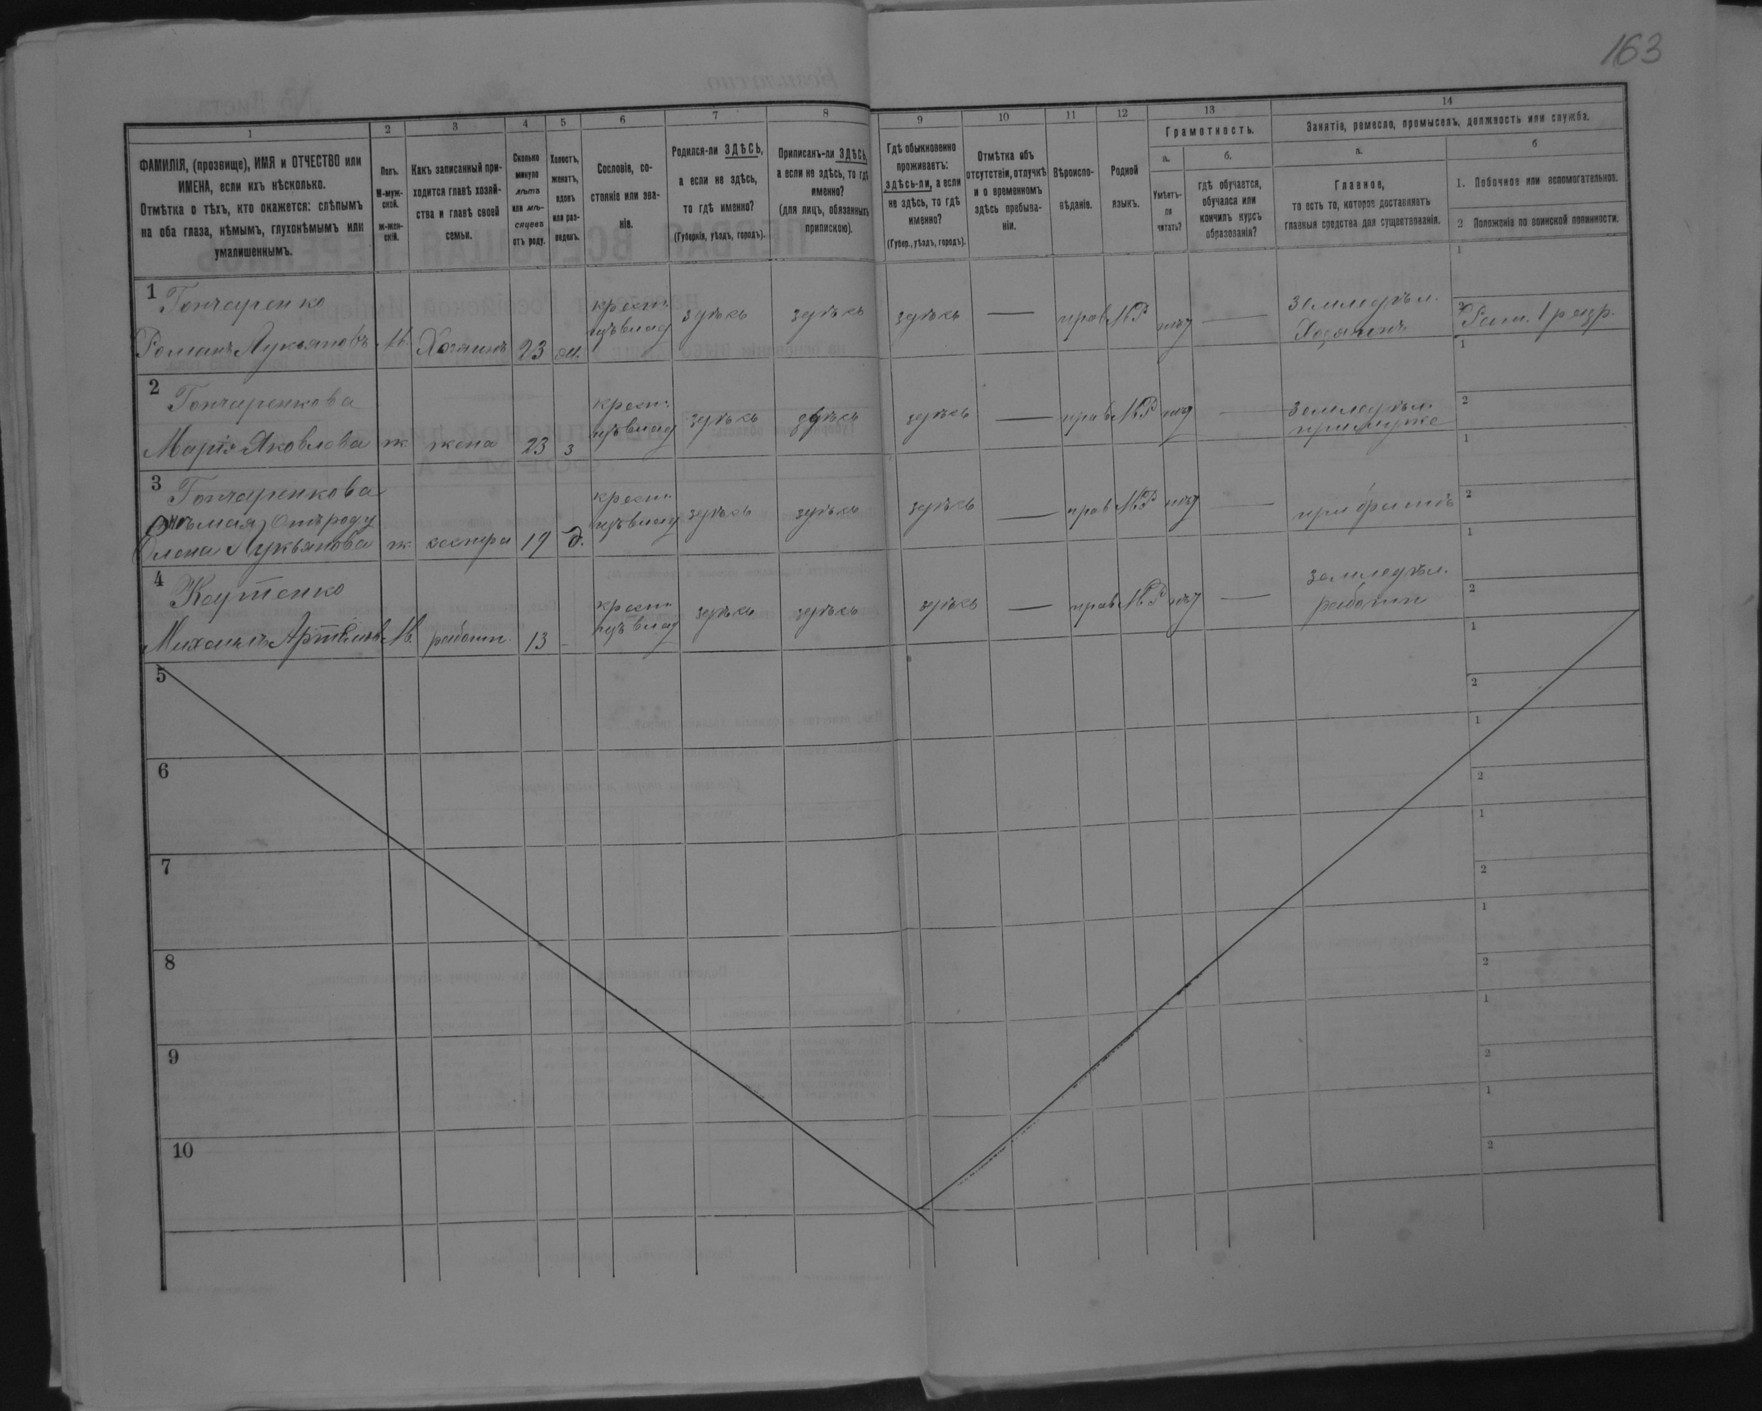 163
1 2 3 4 5 6 7 8 9 10 11 12 13 14
ФАМИЛІЯ, (прозвище), ИМЯ и ОТЧЕСТВО или
ИМЕНА, если ихъ нѣсколько.
Отмѣтка о тѣхъ, кто окажется: слѣпымъ
на оба глаза, нѣмымъ, глухонѣмымъ или
умалишеннымъ.
Полъ.
М-муж-
ской.
ж-жен-
скій.
Какъ записанный при-
ходится главѣ хозяй-
ства и главѣ своей
семьи.
Сколько
минуло
лѣтъ
или мѣ-
сяцевъ
отъ роду.
Холостъ,
женатъ,
вдовъ
или раз-
веденъ.
Сословіе, со-
стояніе или зва-
ніе.
Родился-ли ЗДѢСЬ,
а если не здѣсь,
то гдѣ именно?
(Губернія, уѣздъ, городъ).
Приписанъ-ли ЗДѢСЬ,
а если не здѣсь, то гдѣ
именно?
(для лицъ, обязанныхъ
припискою).
Гдѣ обыкновенно
проживаетъ:
здѣсь-ли, а если
не здѣсь, то гдѣ
именно?
(Губер., уѣздъ, городъ).
Отмѣтка объ
отсутствіи, отлучкѣ
и о временномъ
здѣсь пребыва-
ніи.
Вѣроиспо-
вѣданіе.
Родной
языкъ.
Грамотность.
а.
Умѣетъ-
ли
читать?
б.
Гдѣ обучается,
обучался или
кончилъ курсъ
образованія?
Занятіе, ремесло, промыселъ, должность или служба.
а.
Главное,
то есть то, которое доставляетъ
главныя средства для существованія.
б
1. Побочное или вспомогательное.
2 Положеніе по воинской повинности.
1 Гончаренко
Романъ Лукьяновъ М. Хозяинъ 23 жн. крест. здѣсь здѣсь здѣсь — прав МР нѣт — земледѣл. Хозяинъ 1 2 Рат. 1 разр.
2 Гончаренкова
Марія Яковлева ж жена 23 з крест. здѣсь здѣсь здѣсь — прав МР нѣт — земледѣл. при мужѣ 1 2
3 Гончаренкова
нѣмая отъ роду
Елена Лукьянова ж. сестра 17 д. крест. здѣсь здѣсь здѣсь — прав МР нѣт — при братѣ 1 2
4
Михаилъ М работн 13 крест. здѣсь здѣсь здѣсь — прав МР нѣт — земледѣл. работн 1 2
5 1 2
6 1 2
7 1 2
8 1 2
9 1 2
10 1 2